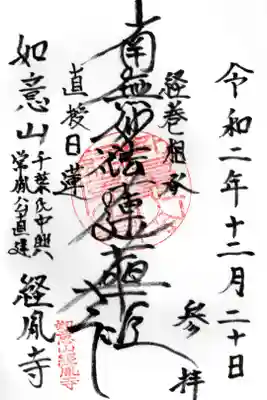 令和二年十二月二十日
参拝
経巻相承
南無妙法蓮華経
直授日蓮
如意山
千葉氏中興
胤公直建
経胤寺
如意山経胤寺